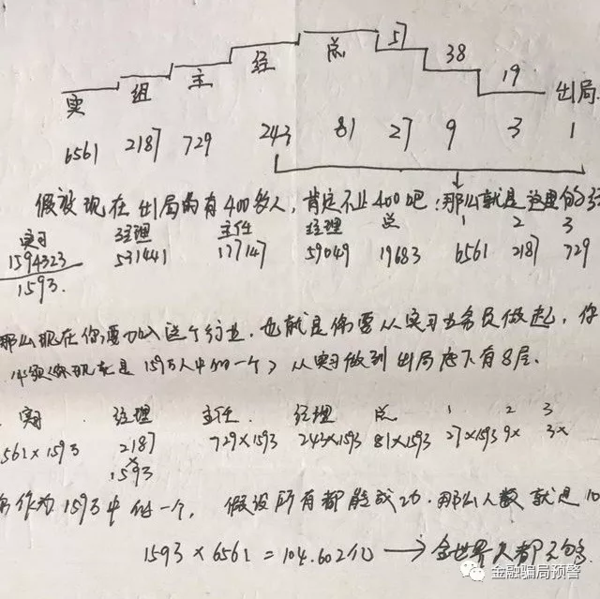 57
38
19
实 组 主 经 总 出局
6561 2187 729 243 81 27 9 3 1
假设现在出局的有400多人，肯定不止400吧，那么就是这里的
实习 经理 主任 经理 总 1 2 3
1594323 531441 177147 59049 19683 6561 2187 729
1593.
那么现在你要加入这个行业，也就是你要从实习业务员做起，你
你现在就是1593万人中的一个）从实习做到出局底下有8层.
实习 经理 主任 经理 总 1 2 3
561×1593 2187 729×1593 243×1593 81×1593 27×1593 9× 3×
×
1593
作为1593中任一个，假设所有都能成功，那么人数就是10
1593×6561=104.602亿 → 全世界人都不够
金融骗局预警